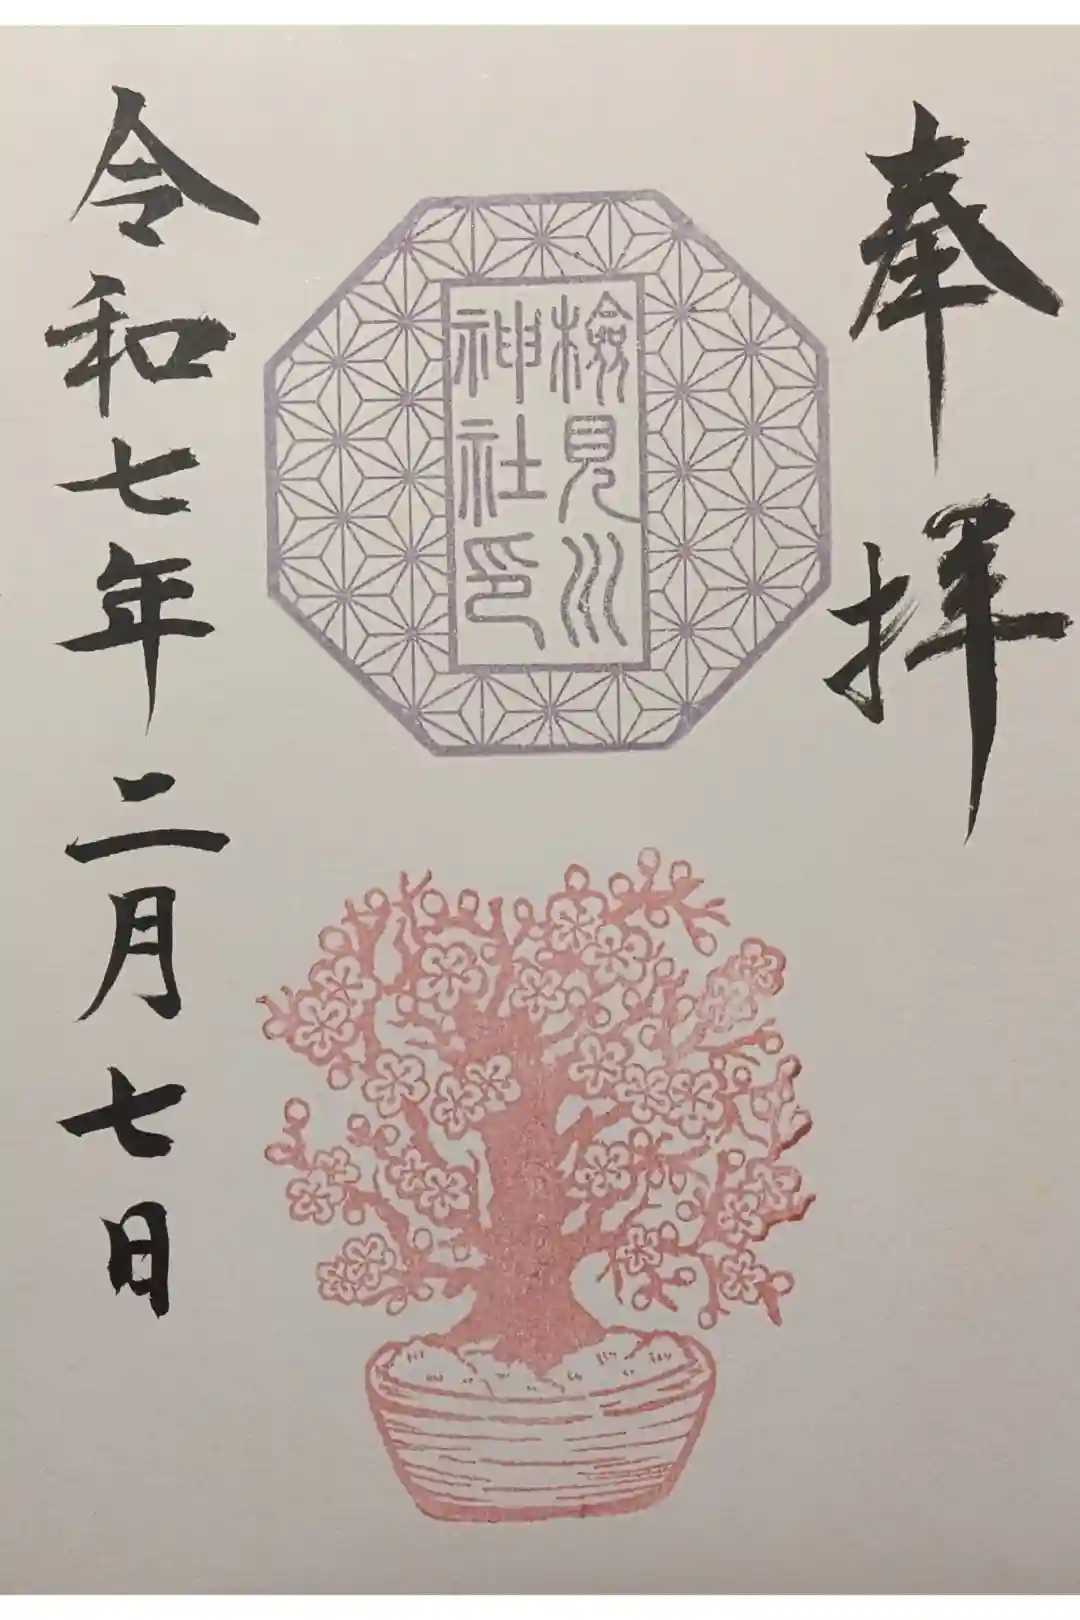 奉拝
檢見川
神社印
令和七年二月七日